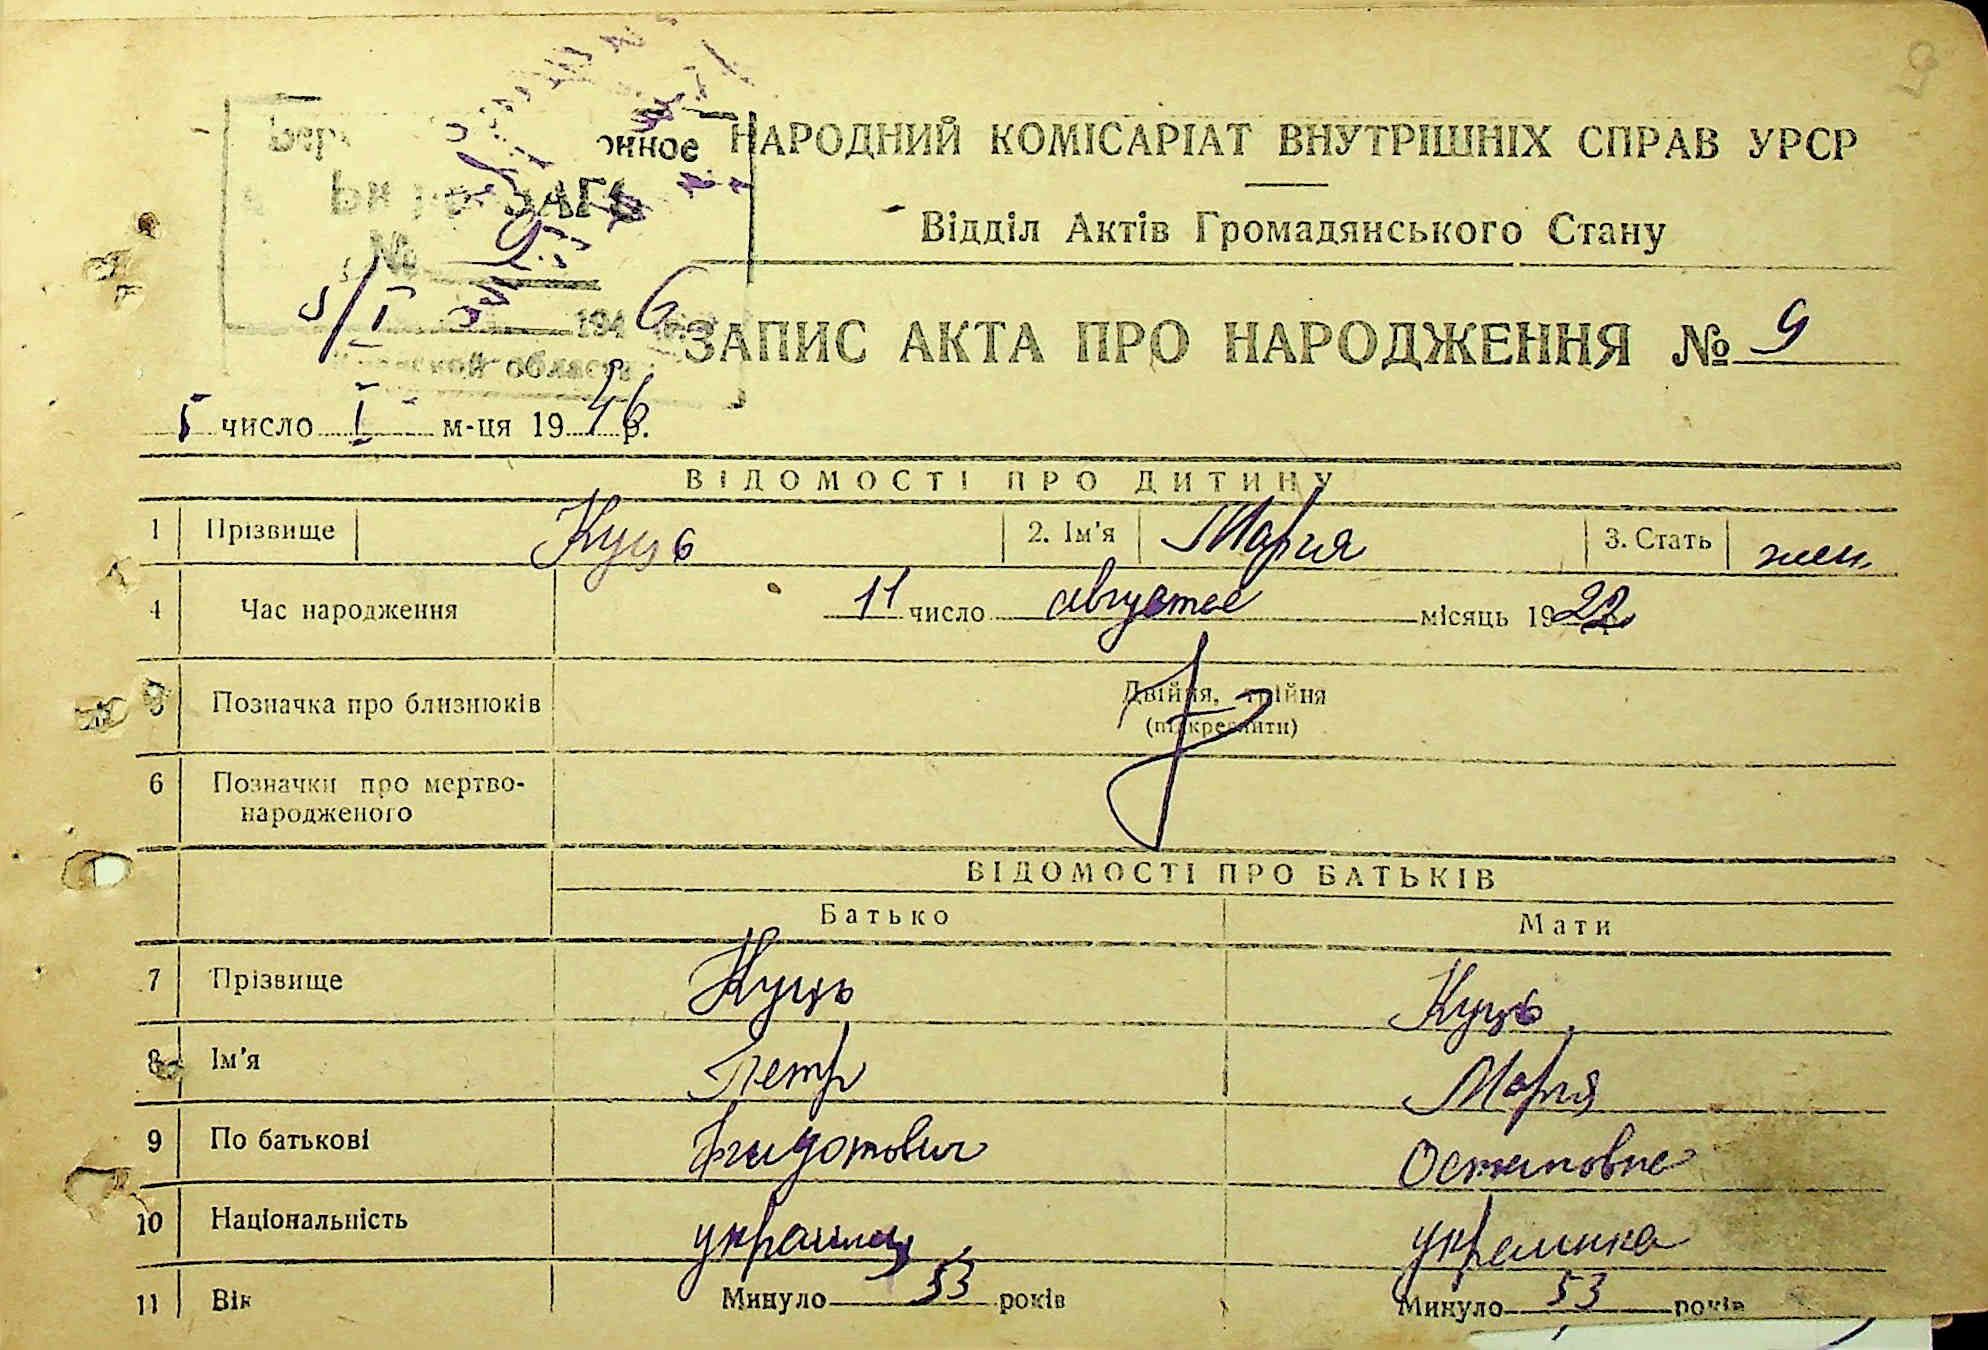 9
онное
ЗАГС
№ 9
5/I 1946
области
НАРОДНИЙ КОМІСАРІАТ ВНУТРІШНІХ СПРАВ УРСР
Відділ Актів Громадянського Стану
ЗАПИС АКТА ПРО НАРОДЖЕННЯ № 9
5 число I м-ця 1946 р.
ВІДОМОСТІ ПРО ДИТИНУ
1 Прізвище Куць 2. Ім'я Мария 3. Стать жен.
4 Час народження 11 число августа місяць 1922
5 Позначка про близнюків Двійня, трійня
(підкреслити)
6 Позначки про мертво-
народженого
ВІДОМОСТІ ПРО БАТЬКІВ
Батько Мати
7 Прізвище Куць Куць
8 Ім'я Петр Мария
9 По батькові Федотович Остаповна
10 Національність украинец украинка
11 Вік Минуло 53 років Минуло 53 років